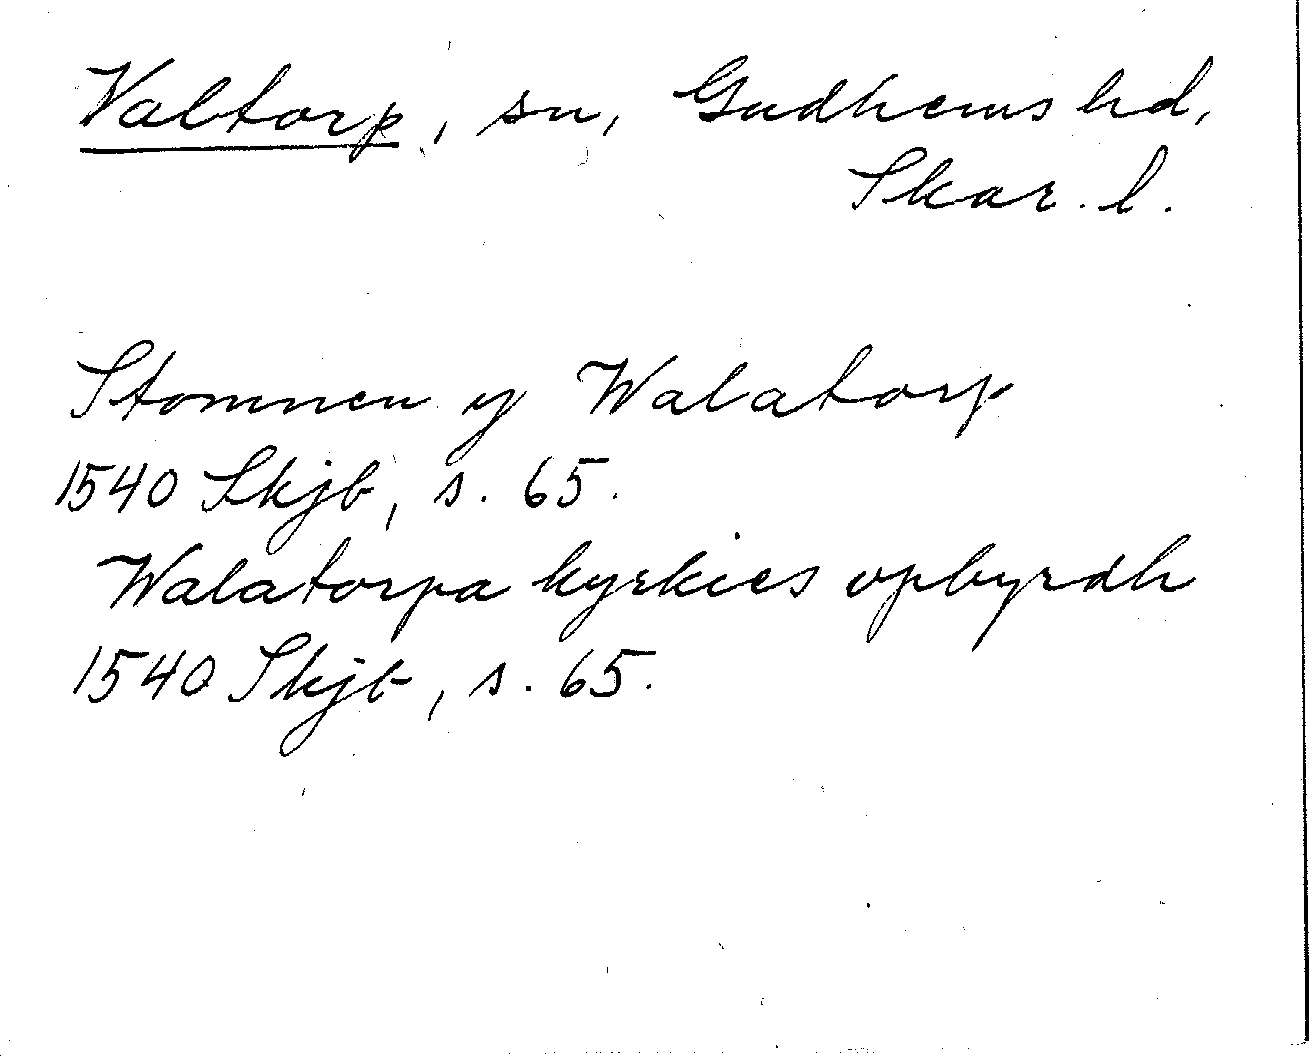 Valtorp, sn, Gudhems hd,
Skar. l.
Stommen y Walatorp
1540 Skjb, s. 65.
Walatorpa kyrkies opbyrdh
1540 Skjb, s. 65.